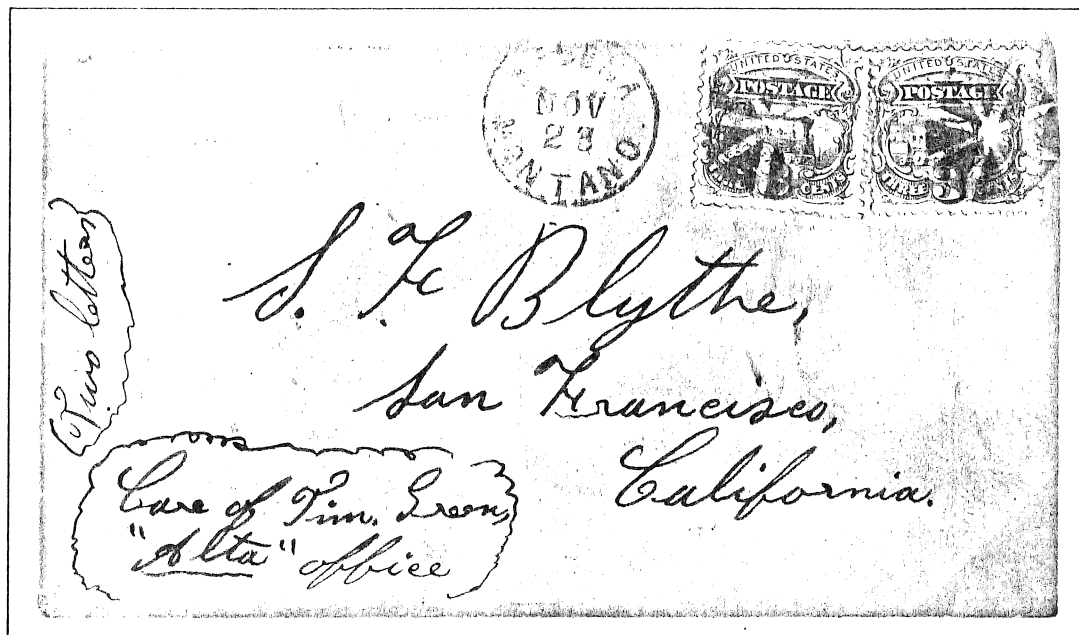 NOV
23
MONTANO.
UNITED STATES
POSTAGE
CENTS
UNITED STATES
POSTAGE
THREE 3 CENTS
Two letters
S. F. Blythe,
San Francisco,
California.
Care of Tim. Green,
"Alta" office